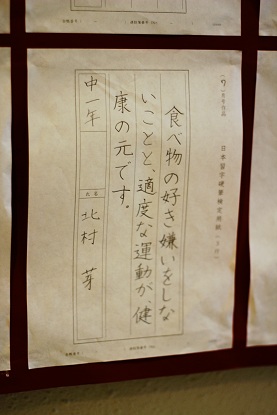 日本習字硬筆検定用紙
食べ物の好き嫌いをしな
いことと、適度な運動が、健
康の元です。
中一年
氏名
北村 芽